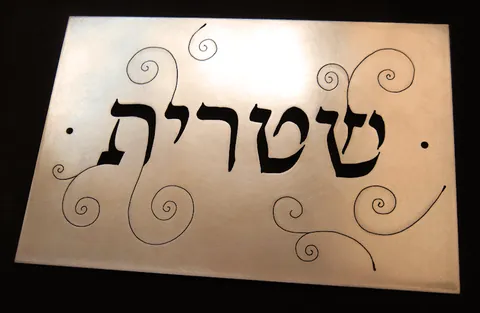 שטרית